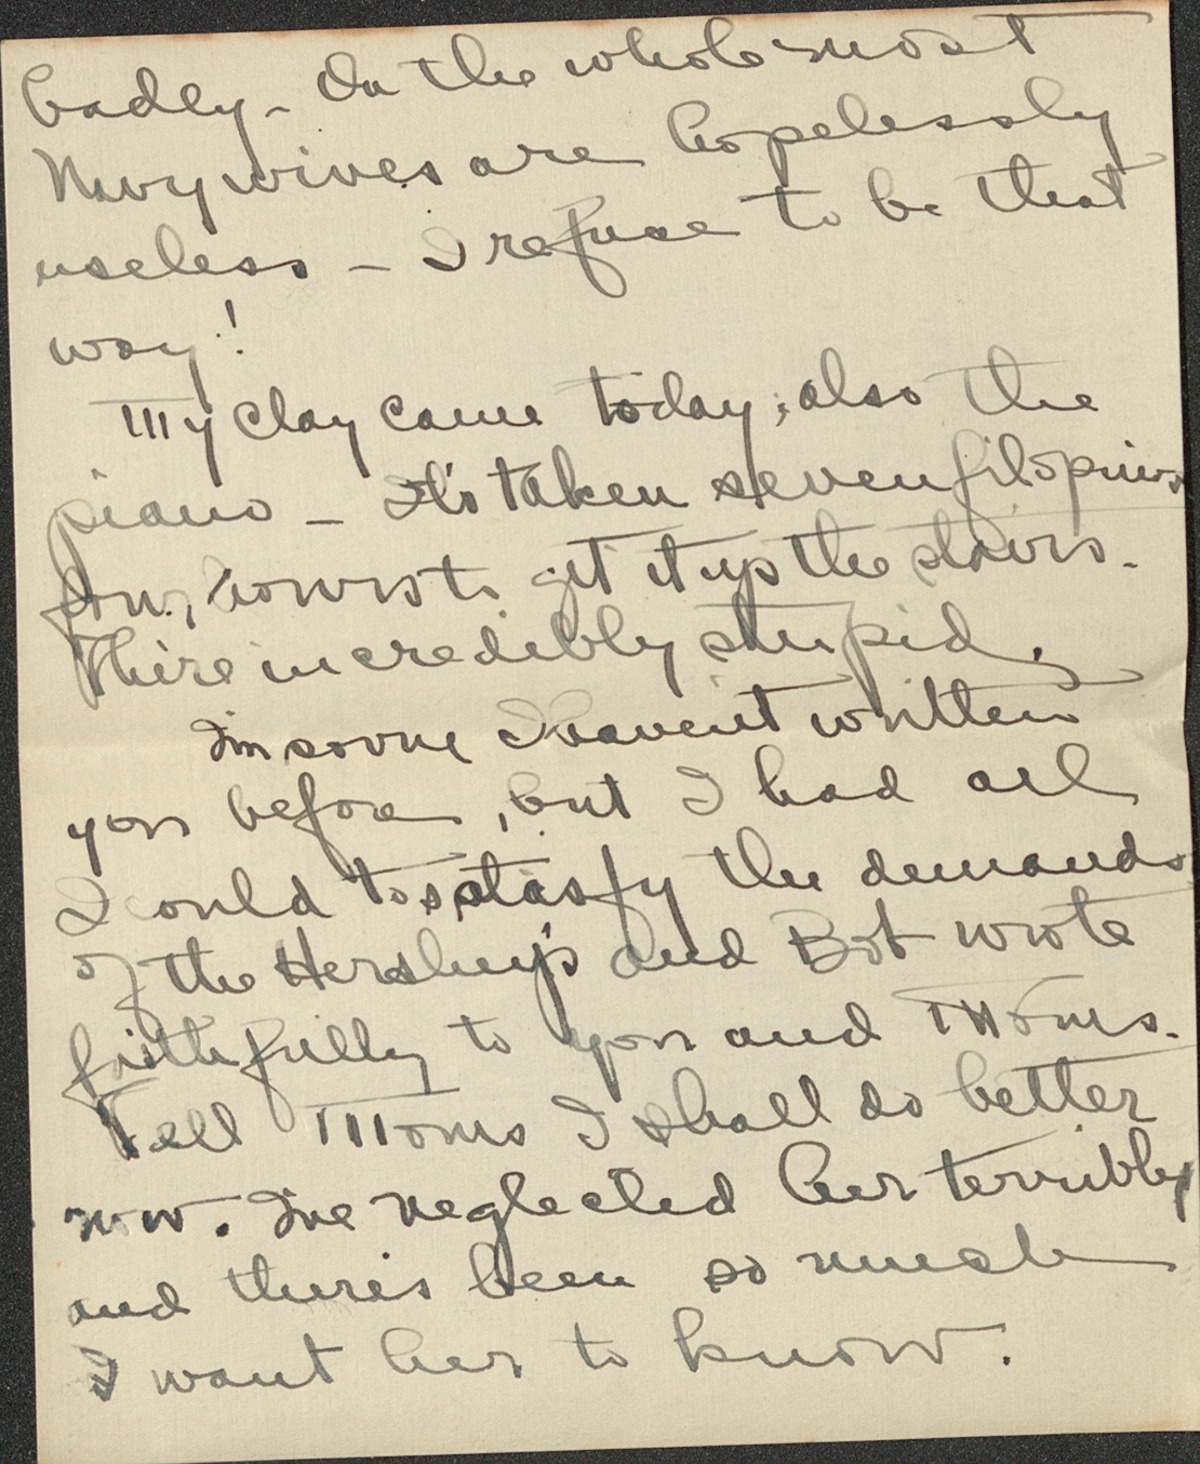 badly - On the whole most
Navy wives are hopelessly
useless - I refuse to be that
way!
My clay came today; also the
piano - It's taken seven filopinos
four, hours to get it up the stairs.
Their incredibly stupid.
I'm sorry I haven't written
you before, but I had all
I could to satasfy the demands
of the Hershey's and Bob wrote
faithfully to you and Moms.
Tell Moms I shall do better
now. I've neglected her terribly
and there's been so much
I want her to know.